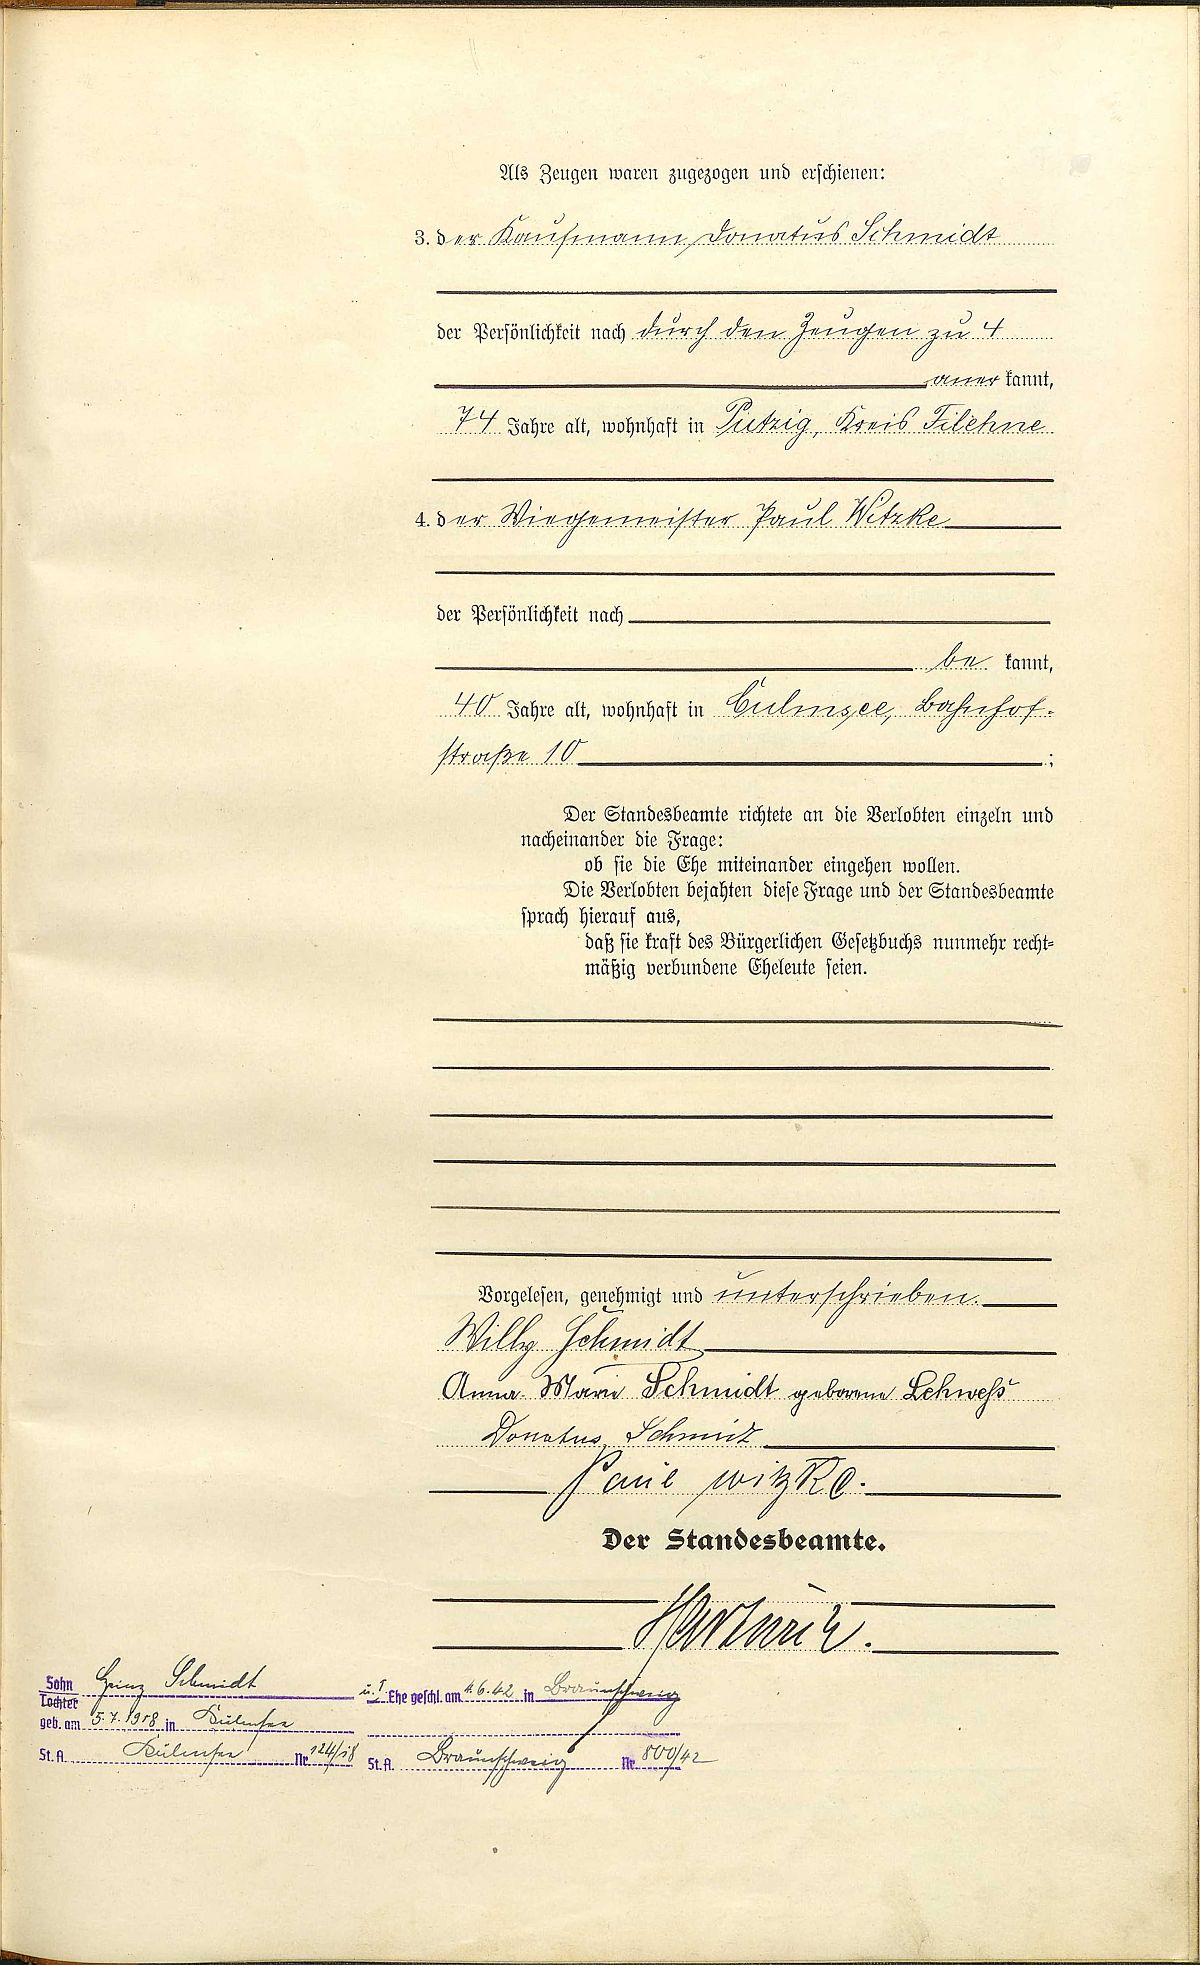 Als Zeugen waren zugezogen und erschienen:
3. der Kaufmann Donatus Schmidt
der Persönlichkeit nach durch den Zeugen zu 4
anerkannt,
74 Jahre alt, wohnhaft in Putzig, Kreis Filehne
4. der Wiegemeister Paul Witzke
der Persönlichkeit nach
bekannt,
40 Jahre alt, wohnhaft in Culmsee, Bahnhof-
straße 10 ;
Der Standesbeamte richtete an die Verlobten einzeln und
nacheinander die Frage:
ob sie die Ehe miteinander eingehen wollen.
Die Verlobten bejahten diese Frage und der Standesbeamte
sprach hierauf aus,
daß sie kraft des Bürgerlichen Gesetzbuchs nunmehr recht-
mäßig verbundene Eheleute seien.
Vorgelesen, genehmigt und unterschrieben.
Willy Schmidt
Anna Marie Schmidt geborene Lehweß
Donatus Schmidt
Paul Witzke.
Der Standesbeamte.
Sohn Heinz Schmidt
Tochter
geb. am 5.7.1918 in Kulmsee
St.A. Kulmsee Nr. 124/18
I. Ehe geschl. am 4.6.42 in Braunschweig
St.A. Braunschweig Nr. 800/42